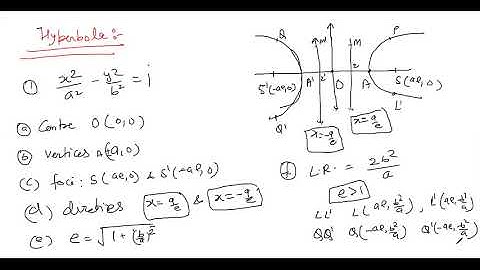 Hyperbola :-
① x²/a² - y²/b² = 1
ⓐ Centre O(0,0)
ⓑ vertices A(±a,0)
(c) foci : S(ae,0) & S'(-ae,0)
(d) directries x = a/e & x = -a/e
(e) e = √(1+(b/a)²)
Q M M P
S'(-ae,0) A' Z' O Z A S(ae,0)
Q' L'
x = -a/e x = a/e
ⓕ L.R. = 2b²/a
e>1
LL' L(ae, b²/a), L'(ae, b²/a)
QQ' Q(-ae, b²/a) Q'(-ae, b²/a)